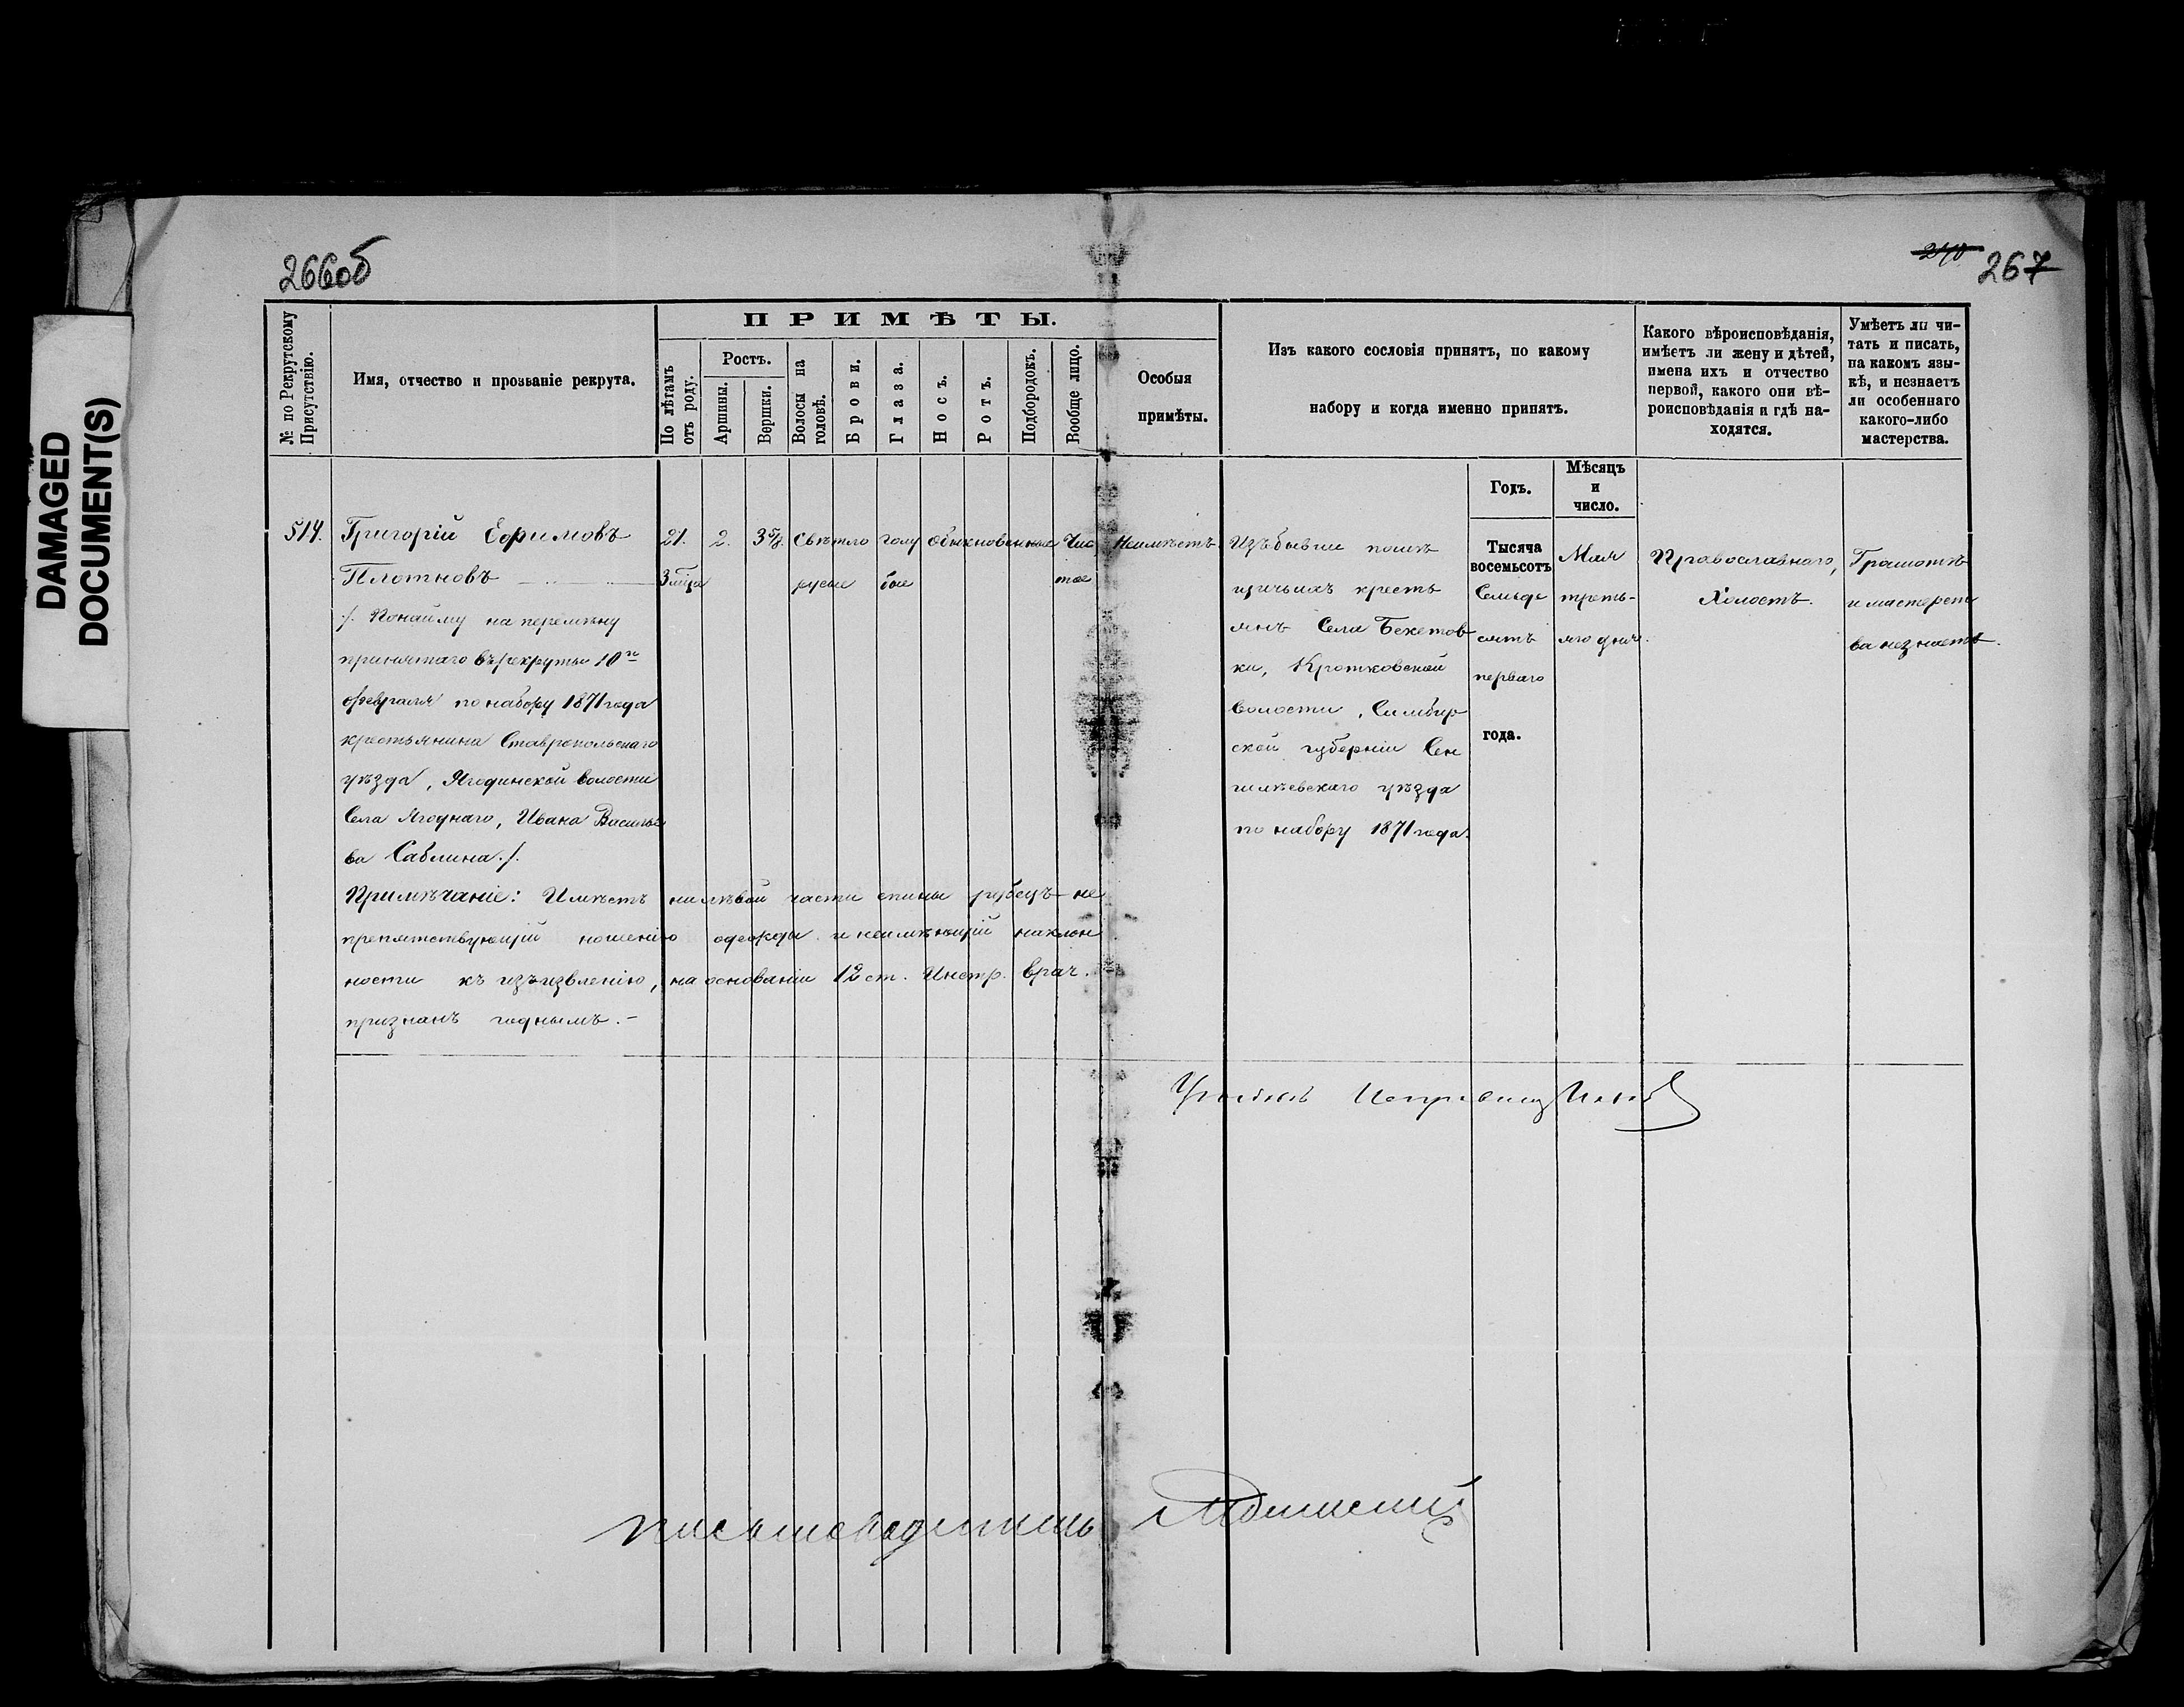 266об
267
DAMAGED
DOCUMENT(S)
№ по Рекрутскому
Присутствію.
Имя, отчество и прозваніе рекрута.
ПРИМѢТЫ.
По лѣтамъ
отъ роду.
Ростъ.
Аршины.
Вершки.
Волосы на
головѣ.
Брови.
Глаза.
Носъ.
Ротъ.
Подбородокъ.
Вообще лицо.
Особыя
примѣты.
Изъ какого сословія принятъ, по какому
набору и когда именно принятъ.
Какого вѣроисповѣданія,
имѣетъ ли жену и дѣтей,
имена ихъ и отчество
первой, какого они вѣ-
роисповѣданія и гдѣ на-
ходятся.
Умѣетъ ли чи-
тать и писать,
на какомъ язы-
кѣ, и незнаетъ
ли особеннаго
какого-либо
мастерства.
Годъ.
Мѣсяцъ
и
число.
514.
Григорій Ефимовъ
Плотновъ
/. По найму на перемѣну
принятаго въ рекруты 10го
февраля по набору 1871 года
крестьянина Ставропольскаго
уѣзда, Ягодинской волости
Села Ягоднаго, Ивана Василье
ва Саблина./.
21.
3 мѣся
2.
3 5/8
Свѣтло
русые
голу
бые
обыкновенные
Чис
тое
Неимѣетъ
Изъ бывши помѣ
щичьихъ кресть
янъ Села Бекетов
ки, Кротковской
волости, Симбир
ской губерніи Сен
гилѣевскаго уѣзда
по набору 1871 года.
Тысяча
восемьсотъ
Семьде
сятъ
перваго
года.
Мая
треть-
яго дня.
Православнаго,
Холостъ.
Грамотѣ
и мастерст
ва незнаетъ.
Примѣчаніе: Имѣетъ на лѣвой части спины рубецъ не
препятствующій ношенію одежды и неимѣющій наклон
ности къ изъязвленію, на основаніи 12 ст. Инстр. врач.
признанъ годнымъ.-
Исправникъ
Письмоводитель